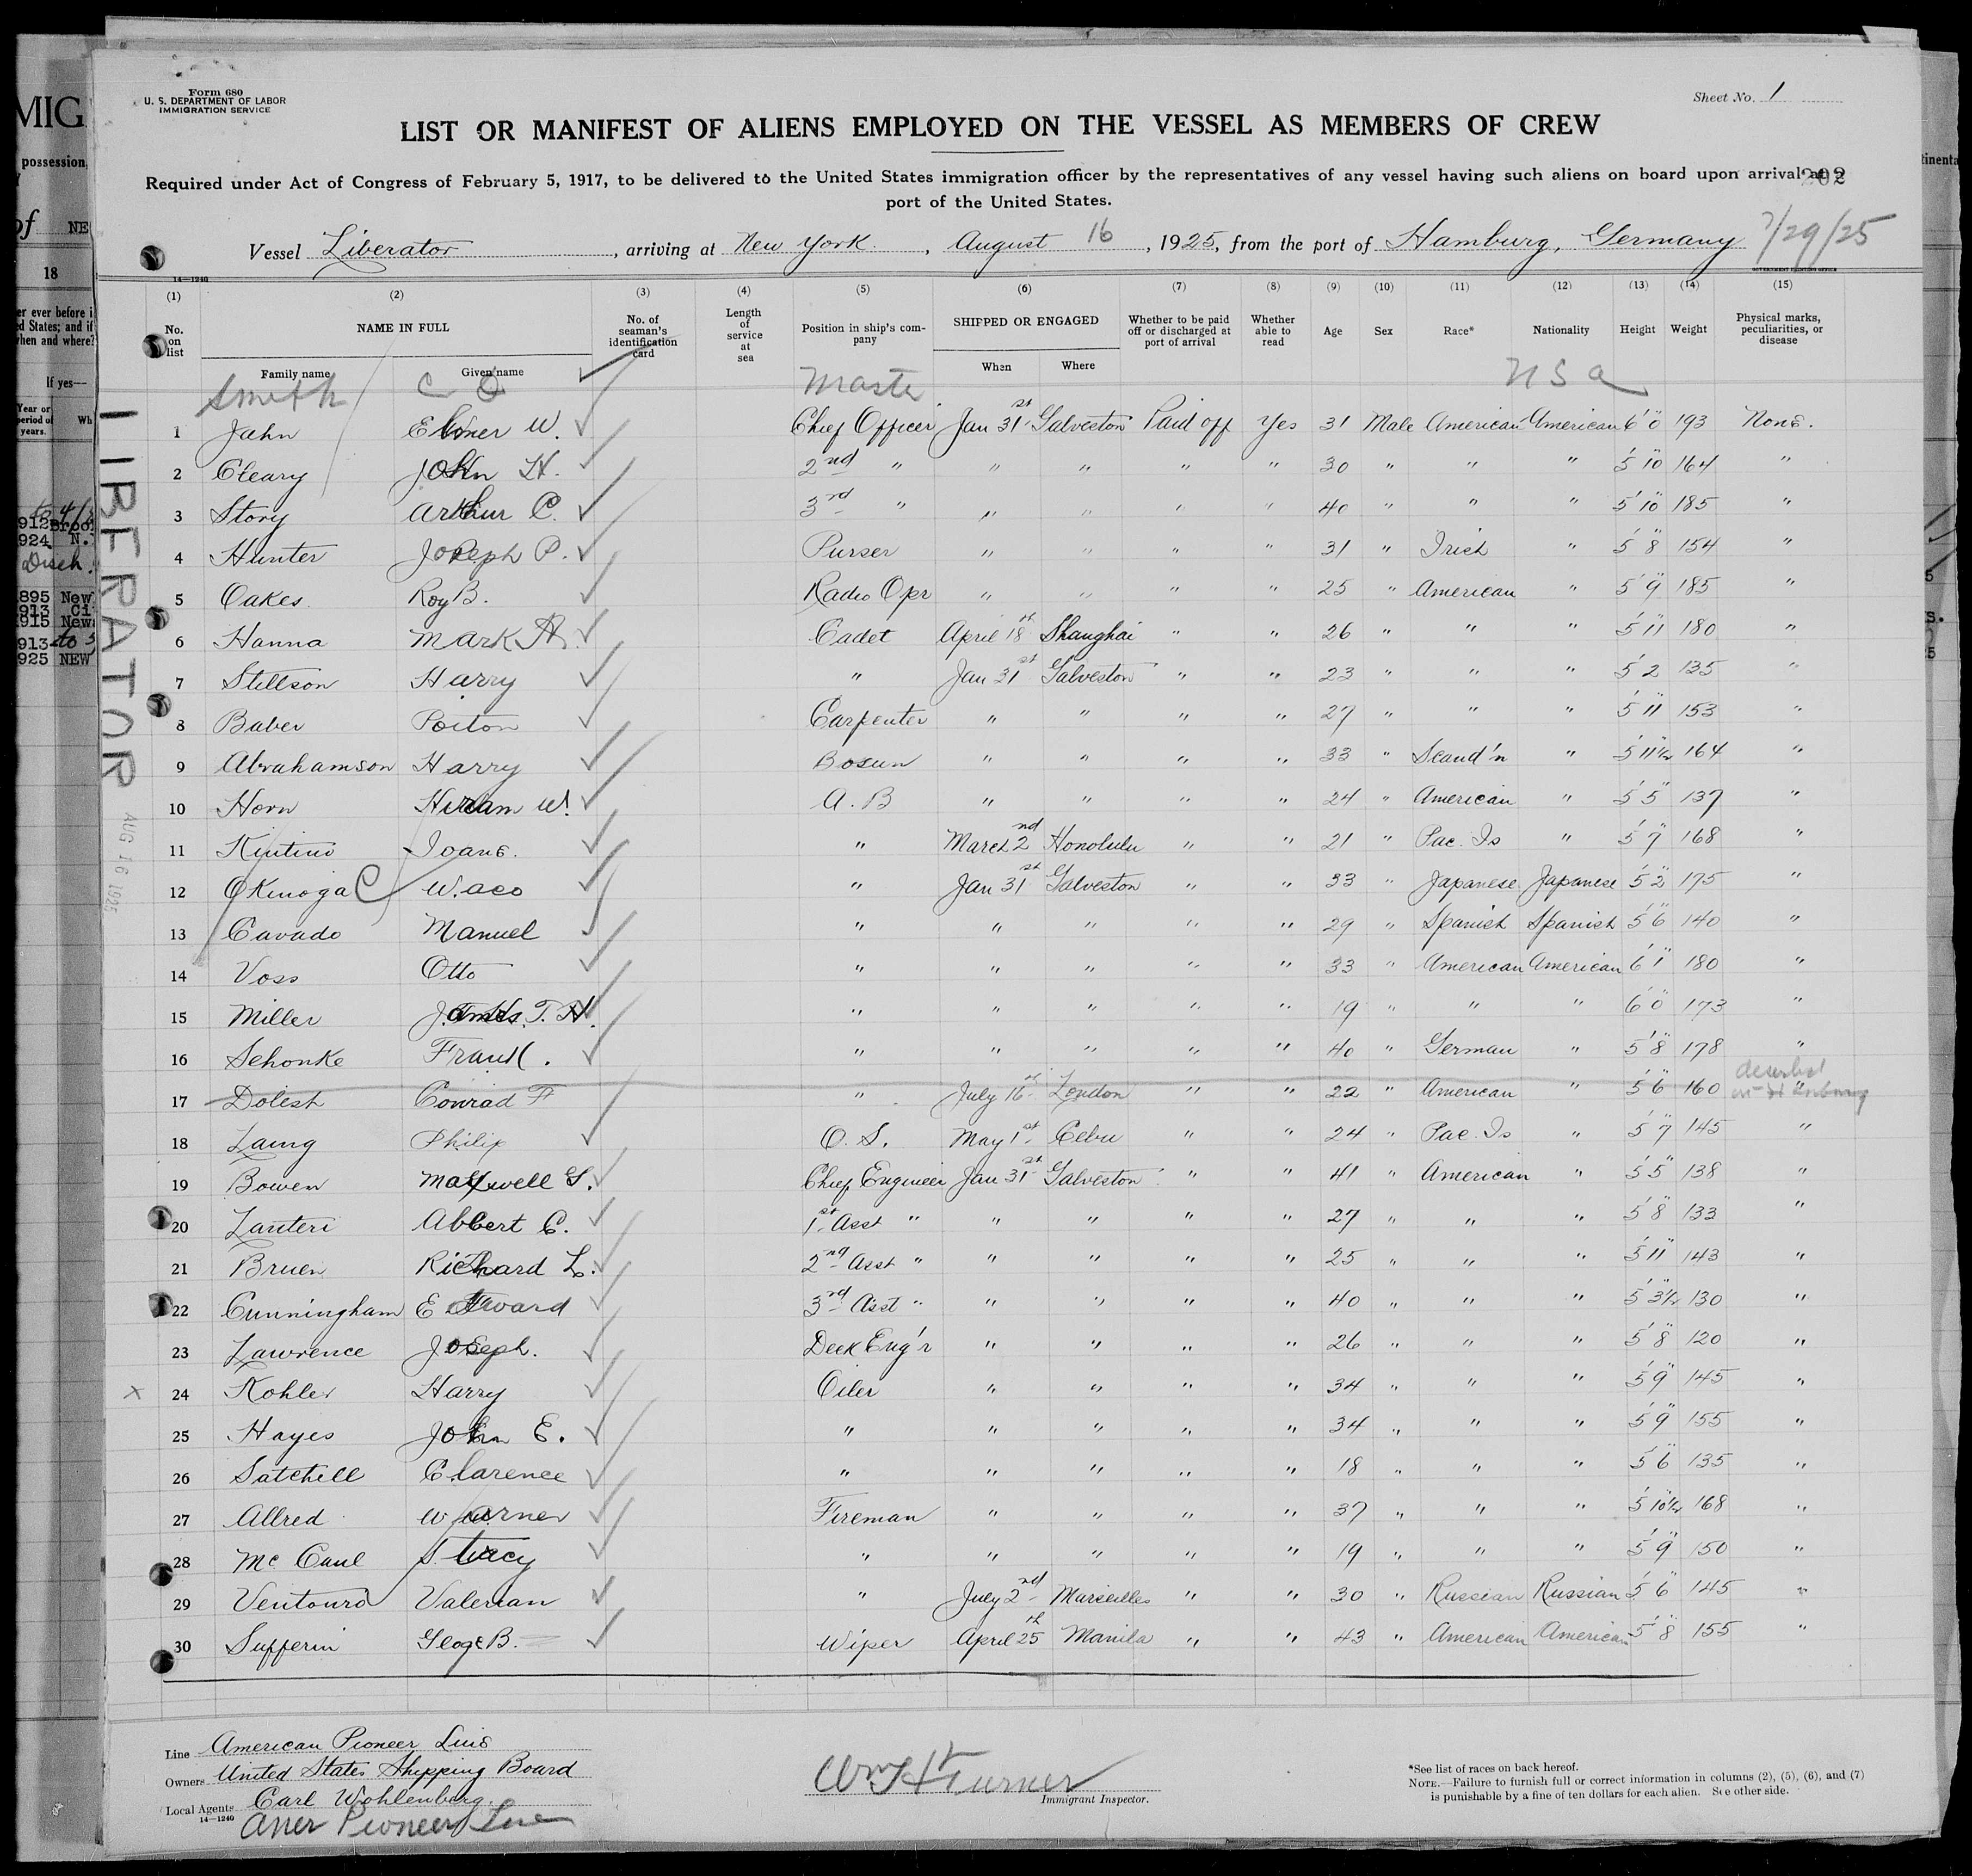 Form 680
U. S. DEPARTMENT OF LABOR
IMMIGRATION SERVICE
Sheet No. 1
LIST OR MANIFEST OF ALIENS EMPLOYED ON THE VESSEL AS MEMBERS OF CREW
Required under Act of Congress of February 5, 1917, to be delivered to the United States immigration officer by the representatives of any vessel having such aliens on board upon arrival at a
port of the United States.
202
Vessel Liberator, arriving at New York, August 16, 1925, from the port of Hamburg, Germany 7/29/25
14—1240
GOVERNMENT PRINTING OFFICE
(1) (2) (3) (4) (5) (6) (7) (8) (9) (10) (11) (12) (13) (14) (15)
No. on list NAME IN FULL No. of seaman's identification card Length of service at sea Position in ship's company SHIPPED OR ENGAGED Whether to be paid off or discharged at port of arrival Whether able to read Age Sex Race* Nationality Height Weight Physical marks, peculiarities, or disease
Family name Given name When Where
Smith C O Master U S A
1 Jahn Elmer W. Chief Officer Jan 31st Galveston Paid off Yes 31 Male American American 6' 0" 193 None.
2 Cleary John H. 2nd " " " " " 30 " " " 5' 10" 164 "
3 Story Arthur C. 3rd " " " " " 40 " " " 5' 10" 185 "
4 Hunter Joseph P. Purser " " " " 31 " Irish " 5' 8" 154 "
5 Oakes Roy B. Radio Opr " " " " 25 " American " 5' 9" 185 "
6 Hanna Mark A. Cadet April 18th Shanghai " " 26 " " " 5' 11" 180 "
7 Stillson Harry " Jan 31st Galveston " " 23 " " " 5' 2 135 "
8 Baber Poiton Carpenter " " " " 27 " " " 5' 11" 153 "
9 Abrahamson Harry Bosun " " " " 33 " Scand'n " 5' 11½" 164 "
10 Horn Hiram W. A. B " " " " 24 " American " 5' 5" 137 "
11 Kintino Ioane. " March 2nd Honolulu " " 21 " Pac. Is " 5' 7" 168 "
12 Okinoga W.aco " Jan 31st Galveston " " 33 " Japanese Japanese 5' 2" 175 "
13 Cavado Manuel " " " " " 29 " Spanish Spanish 5' 6" 140 "
14 Voss Otto " " " " " 33 " American American 6' 1" 180 "
15 Miller James T. H. " " " " " 19 " " " 6' 0" 173 "
16 Schonke Frank. " " " " " 40 " German " 5' 8" 178 "
deserted
17 Dolesh Conrad F " July 16th London " " 22 " American " 5' 6" 160 "
in Hamburg
18 Laing Philip O. S. May 1st Cebu " " 24 " Pac. Is " 5' 7" 145 "
19 Bowen Maxwell G. Chief Engineer Jan 31st Galveston " " 41 " American " 5' 5" 138 "
20 Lanteri Albert C. 1st Asst " " " " " 27 " " " 5' 8" 133 "
21 Bruen Richard L. 2nd Asst " " " " " 25 " " " 5' 11" 143 "
22 Cunningham Edward 3rd Asst " " " " " 40 " " " 5' 3½" 130 "
23 Lawrence Joseph. Deck Eng'r " " " " 26 " " " 5' 8" 120 "
x 24 Kohler Harry Oiler " " " " 34 " " " 5' 9" 145 "
25 Hayes John E. " " " " " 34 " " " 5' 9" 155 "
26 Satchell Clarence " " " " " 18 " " " 5' 6" 135 "
27 Allred Warner Fireman " " " " 37 " " " 5' 10½" 168 "
28 Mc Caul S. Tracy " " " " " 19 " " " 5' 9" 150 "
29 Ventouro Valerian " July 2nd Marseilles " " 30 " Russian Russian 5' 6" 145 "
30 Sufferin George B. Wiper April 25th Manila " " 43 " American American 5' 8" 155 "
LIBERATOR
AUG 16 1925
Line American Pioneer Line
Owners United States Shipping Board
Local Agents Carl Wohlenberg.
14—1240
Amer Pioneer Line
Wm H Turner
Immigrant Inspector.
*See list of races on back hereof.
NOTE.—Failure to furnish full or correct information in columns (2), (5), (6), and (7)
is punishable by a fine of ten dollars for each alien. See other side.
MIG
possession
of NE
18
er ever before i
ed States; and if
when and where?
If yes—
Year or
period of
years. Wh
1912 Broo
1924 N.
Disch.
1895 New
1913 Ci
1915 New
1913 to 5
1925 NEW